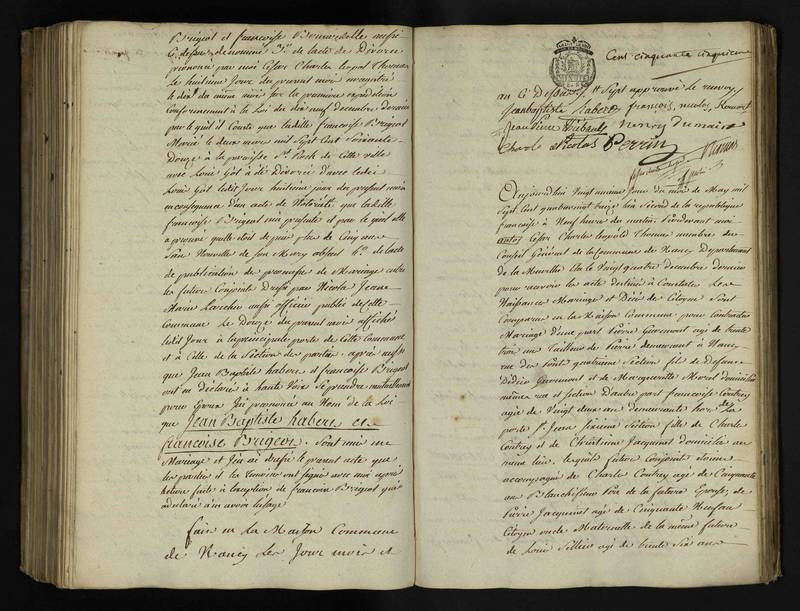 Brigeot et francoise Bournel elle aussi
de lacte de Divorce
prononcé par moi Cesar Charles leopold Thomas
Le huitieme Jour du present mois enregistré
le dix du même mois sur la premiere expedition
Conforement à la Loi du dix neuf decembre dernier
par le quel il Conste que ladite francoise Brigeot
Mariée le deux mars mil Sept Cent Soixante
Douze à la paroisse St Roch de Cette ville
avec Louis Gol à été Divorcée d'avec ledit
Louis Gol ledit Jour huitieme jour du present mois
en consequence d'un acte de Notoriété que ladite
francoise Brigeot m'a présenté et par le quel elle
a prouvé quelle étoit depuis plus de Cinq ans
Sans Nouvelle de Son Mary absent de lacte
de publication de promesse de Mariage entre
les futurs Conjoints Dressé par Nicolas Jean
Marie aussi officier public de cette
Commune le Douze du present mois affiché
ledit Jour à la principale porte de Cette Commune
et à Celle de la Section des parties. après aussi
que Jean Baptiste habert et francoise Brigeot
ont eu déclaré à haute Voix Se prendre mutuellement
pour Epoux J'ai prononcé au Nom de la Loi
que Jean Baptiste habert et
francoise Brigeot. Sont unis en
Mariage et J'en ai dressé le present acte que
les parties et les temoins ont signé avec moi après
lecture faite à l'exception de francoise Brigeot qui a
declaré n'en avoir l'usage
fait en la Maison Commune
de Nancy les Jour mois et
Cent cinquante cinquieme
an Ci Dessus Sept approuvé le renvoy
Jeanbaptiste habert francois, nicolas
Jean Pierre Thibault
Charle Nicolas Perrin
Aujourdhui Vingt unieme Jour du mois de May mil
Sept Cent quatrevingt treize l'an Second de la republique
francoise à Neuf heures du matin Pardevant moi
Cesar Charles leopold Thomas membre du
Conseil Général de la Commune de Nancy Departement
de la Meurthe Elu le Vingt quatre decembre dernier
pour recevoir les actes destinés à Constater Les
Naissances Mariages et Décès des Citoyens Sont
Comparus en la Maison Commune pour contracter
Mariage d'une part Pierre Gavremont agé de trente
trois ans Tailleur de Pierre demeurant à Nancy
rue du Pont quatrieme Section fils de Defunt
Didier Gavremont et de Marguerite Morel domiciliée
même rue et Section d'autre part francoise Contrey
agée de Vingt deux ans demeurante hors la
porte St Jean Sixieme Section fille de Charle
Contrey et de Christienne Jacquinet domiciliés au
meme lieu. lesquels futurs Conjoints étoient
accompagnés de Charle Contrey agé de Cinquante
ans Blanchisseur Pere de la future Epouse, de
Pierre Jacquinet agé de Cinquante Neuf ans
Citoyen oncle Maternelle de la même future
de Louis agé de trente Six ans